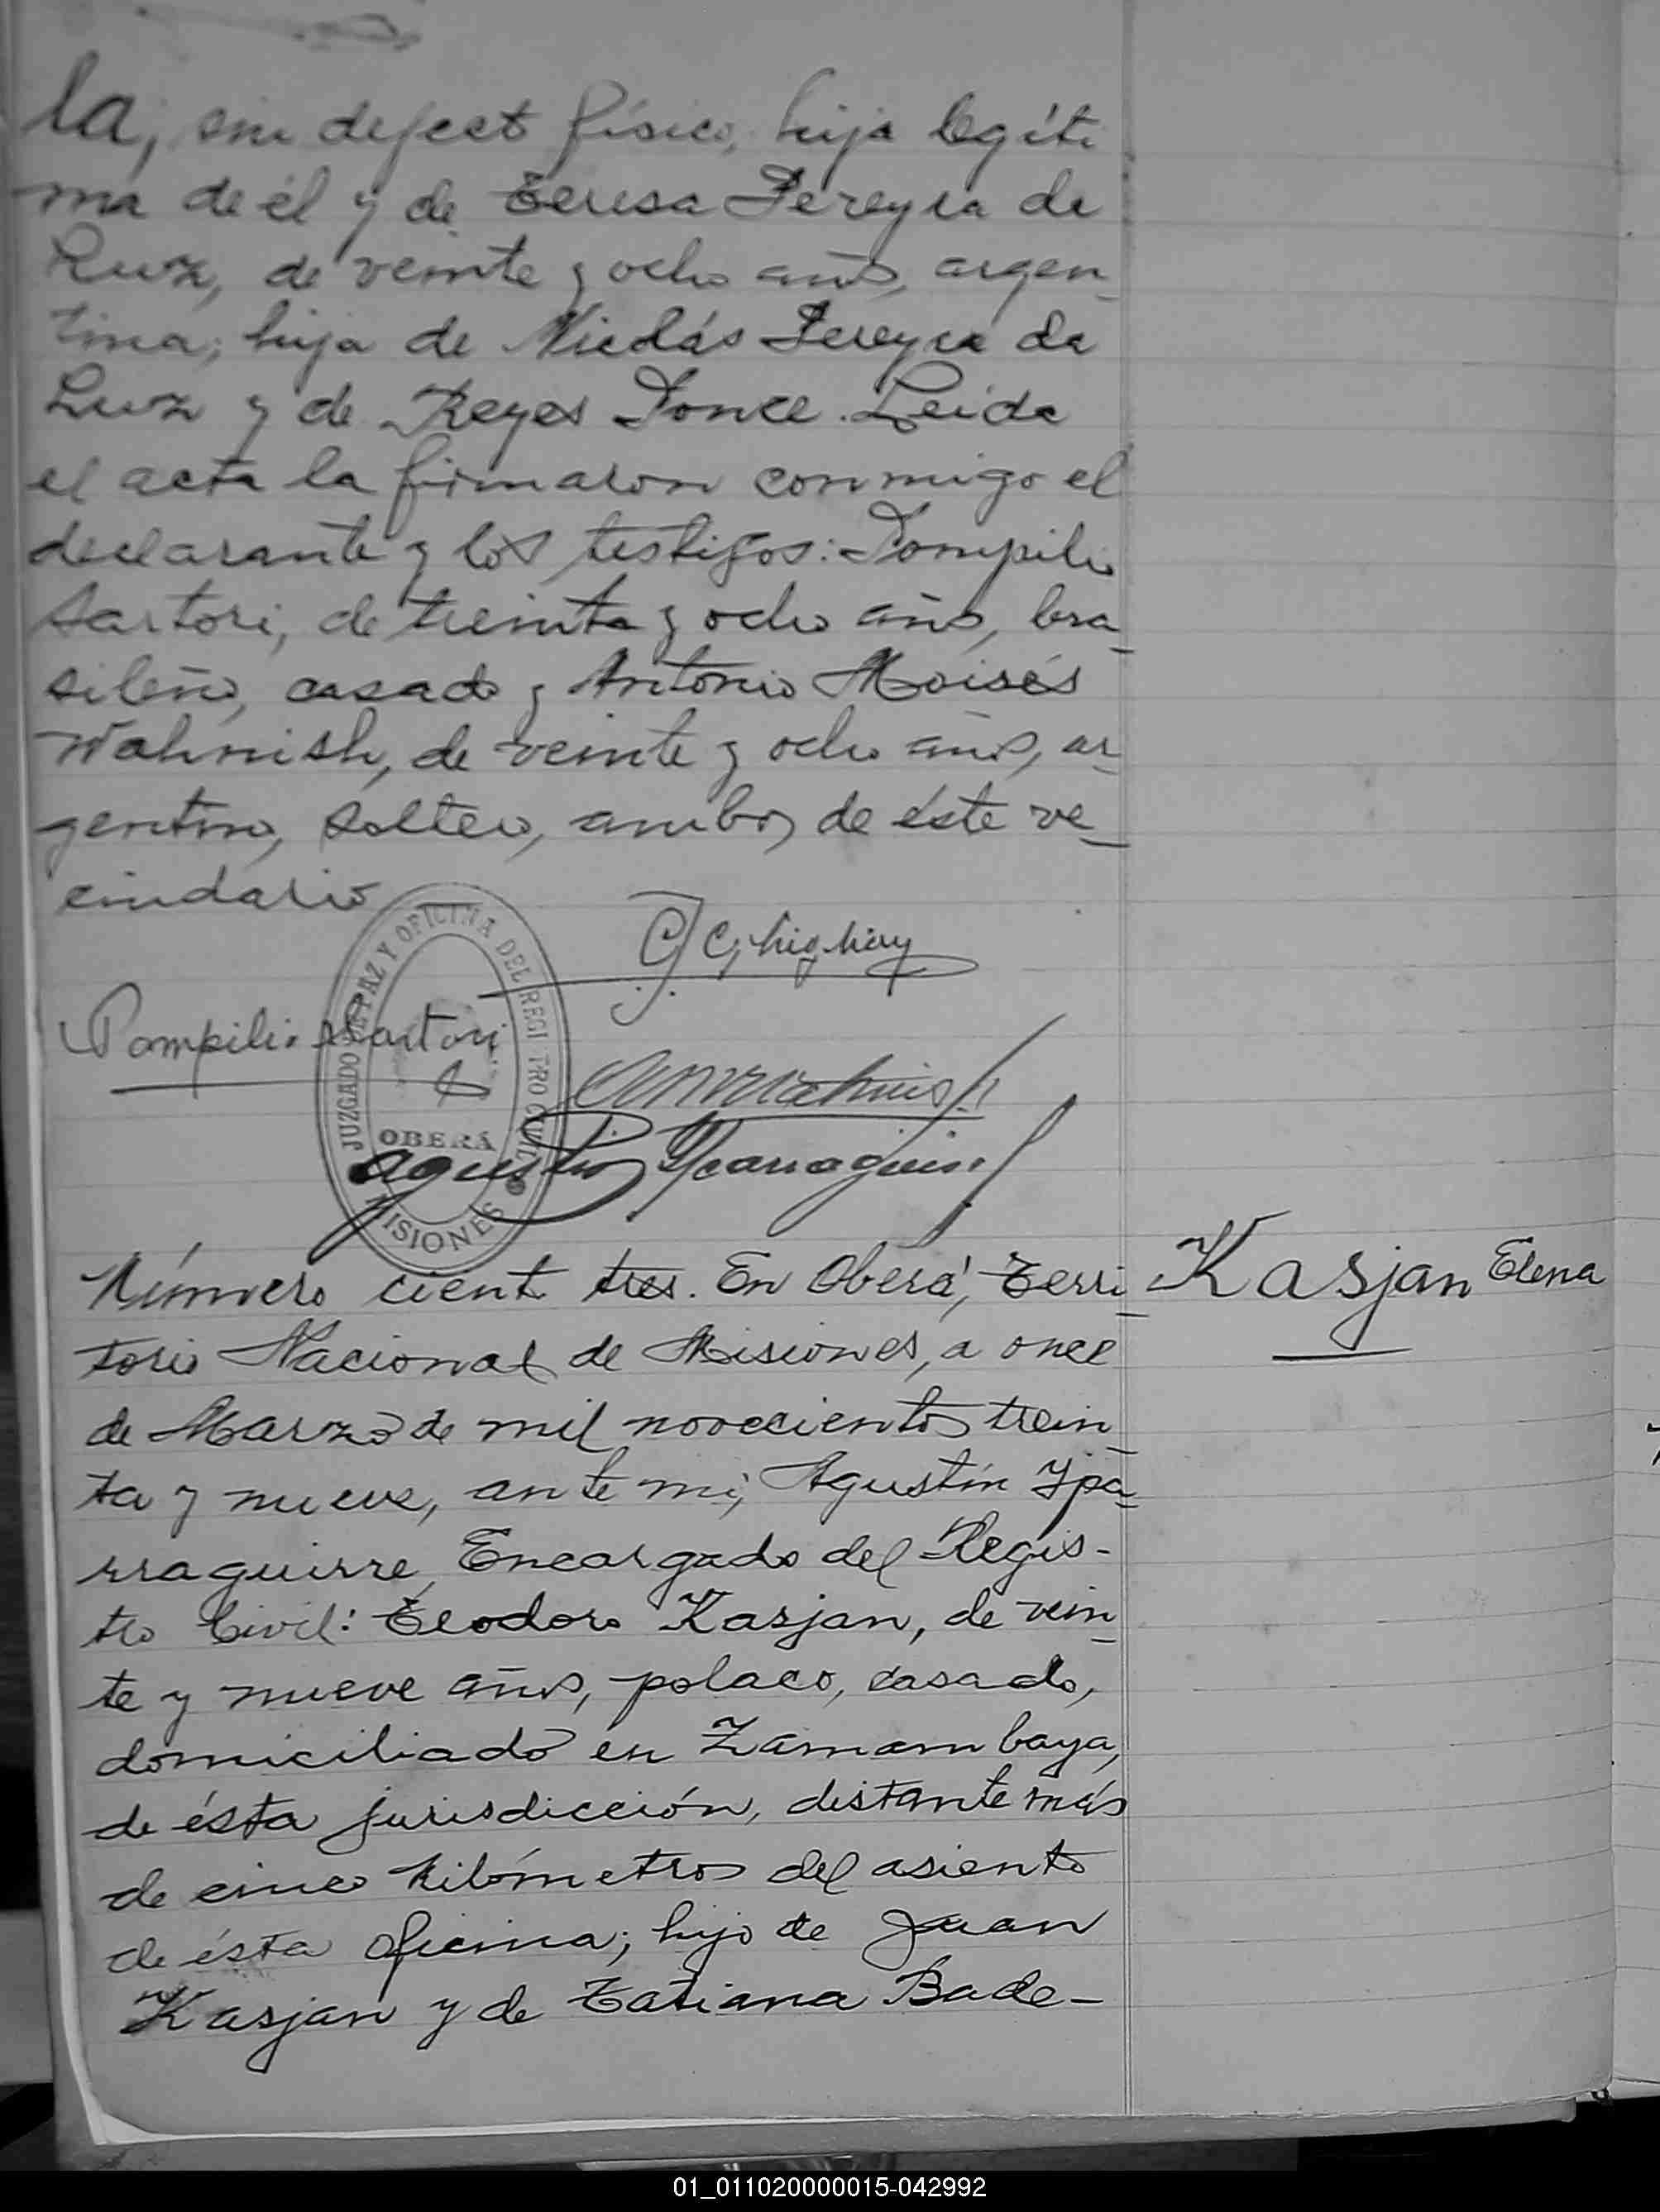 la, sin defecto físico, hija legíti
ma de él y de Teresa Pereyra da
Luz, de veinte y ocho años, argen-
tina; hija de Nicolás Pereyra da
Luz y de Reyes Ponce. Leida
el acta la firmaron conmigo el
declarante y los testigos: Pompilio
Sartori, de treinta y ocho años, bra-
sileño, casado y Antonio Moisés
Wahnish, de veinte y ocho años, ar-
gentino, soltero, ambos de éste ve-
cindario
JUZGADO DE PAZ Y OFICINA DEL REGISTRO CIVIL
OBERÁ
MISIONES
Pompilio Sartori
Agustin Yparraguirre
Número ciento tres. En Oberá, Terri-
torio Nacional de Misiones, a once
de Marzo de mil novecientos trein-
ta y nueve, ante mi, Agustín Ypa-
rraguirre, Encargado del Regis-
tro Civil: Teodoro Kasjan, de vein-
te y nueve años, polaco, casado,
domiciliado en Zamambaya,
de ésta jurisdicción, distante más
de cinco kilómetros del asiento
de ésta oficina; hijo de Juan
Kasjan y de Tatiana Bade-
Kasjan Elena
01_011020000015-042992